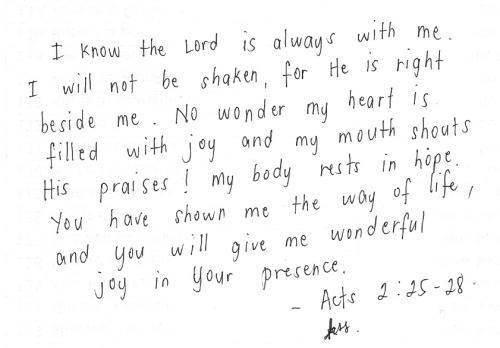 I know the Lord is always with me.
I will not be shaken, for He is right
beside me. No wonder my heart is
filled with joy and my mouth shouts
His praises! My body rests in hope.
You have shown me the way of life,
and you will give me wonderful
joy in Your presence.
- Acts 2:25-28.